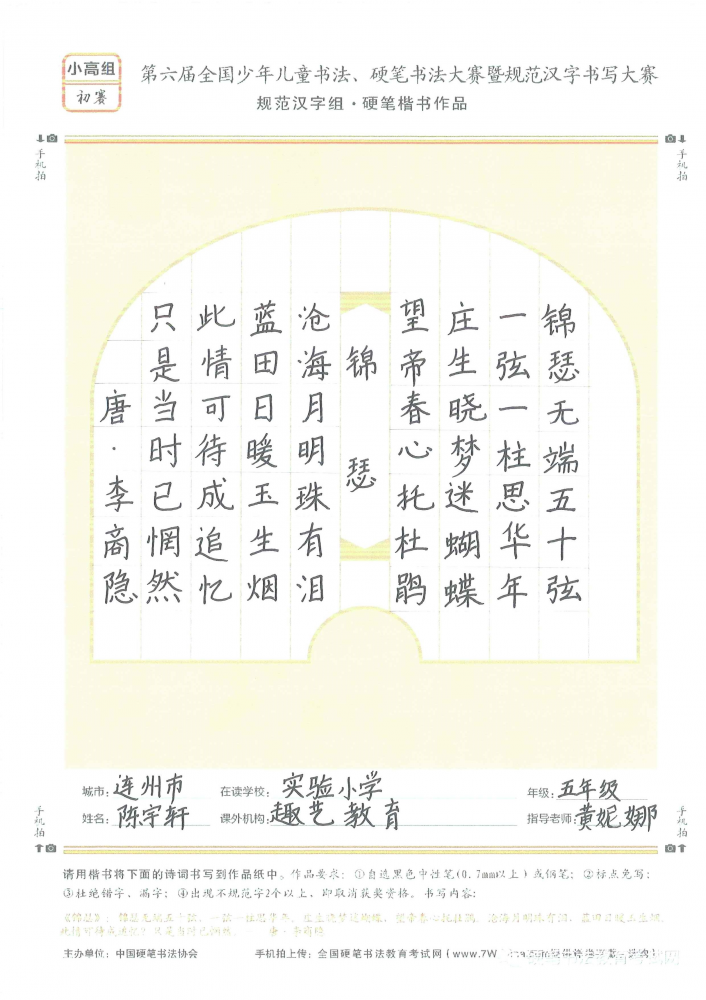 小高组
初赛
第六届全国少年儿童书法、硬笔书法大赛暨规范汉字书写大赛
规范汉字组·硬笔楷书作品
手机拍
手机拍
锦瑟无端五十弦
一弦一柱思华年
庄生晓梦迷蝴蝶
望帝春心托杜鹃
锦瑟
沧海月明珠有泪
蓝田日暖玉生烟
此情可待成追忆
只是当时已惘然
唐·李商隐
城市：连州市 在读学校：实验小学 年级：五年级
姓名：陈宇轩 课外机构：趣艺教育 指导老师：黄妮娜
手机拍
手机拍
请用楷书将下面的诗词书写到作品纸中。作品要求：①自选黑色中性笔(0.7mm以上)或钢笔；②标点免写；
③杜绝错字、漏字；④出现不规范字2个以上，即取消获奖资格。书写内容：
《锦瑟》：锦瑟无端五十弦，一弦一柱思华年。庄生晓梦迷蝴蝶，望帝春心托杜鹃。沧海月明珠有泪，蓝田日暖玉生烟。
此情可待成追忆？只是当时已惘然。 唐·李商隐
主办单位：中国硬笔书法协会 手机拍上传：全国硬笔书法教育考试网（www.7W